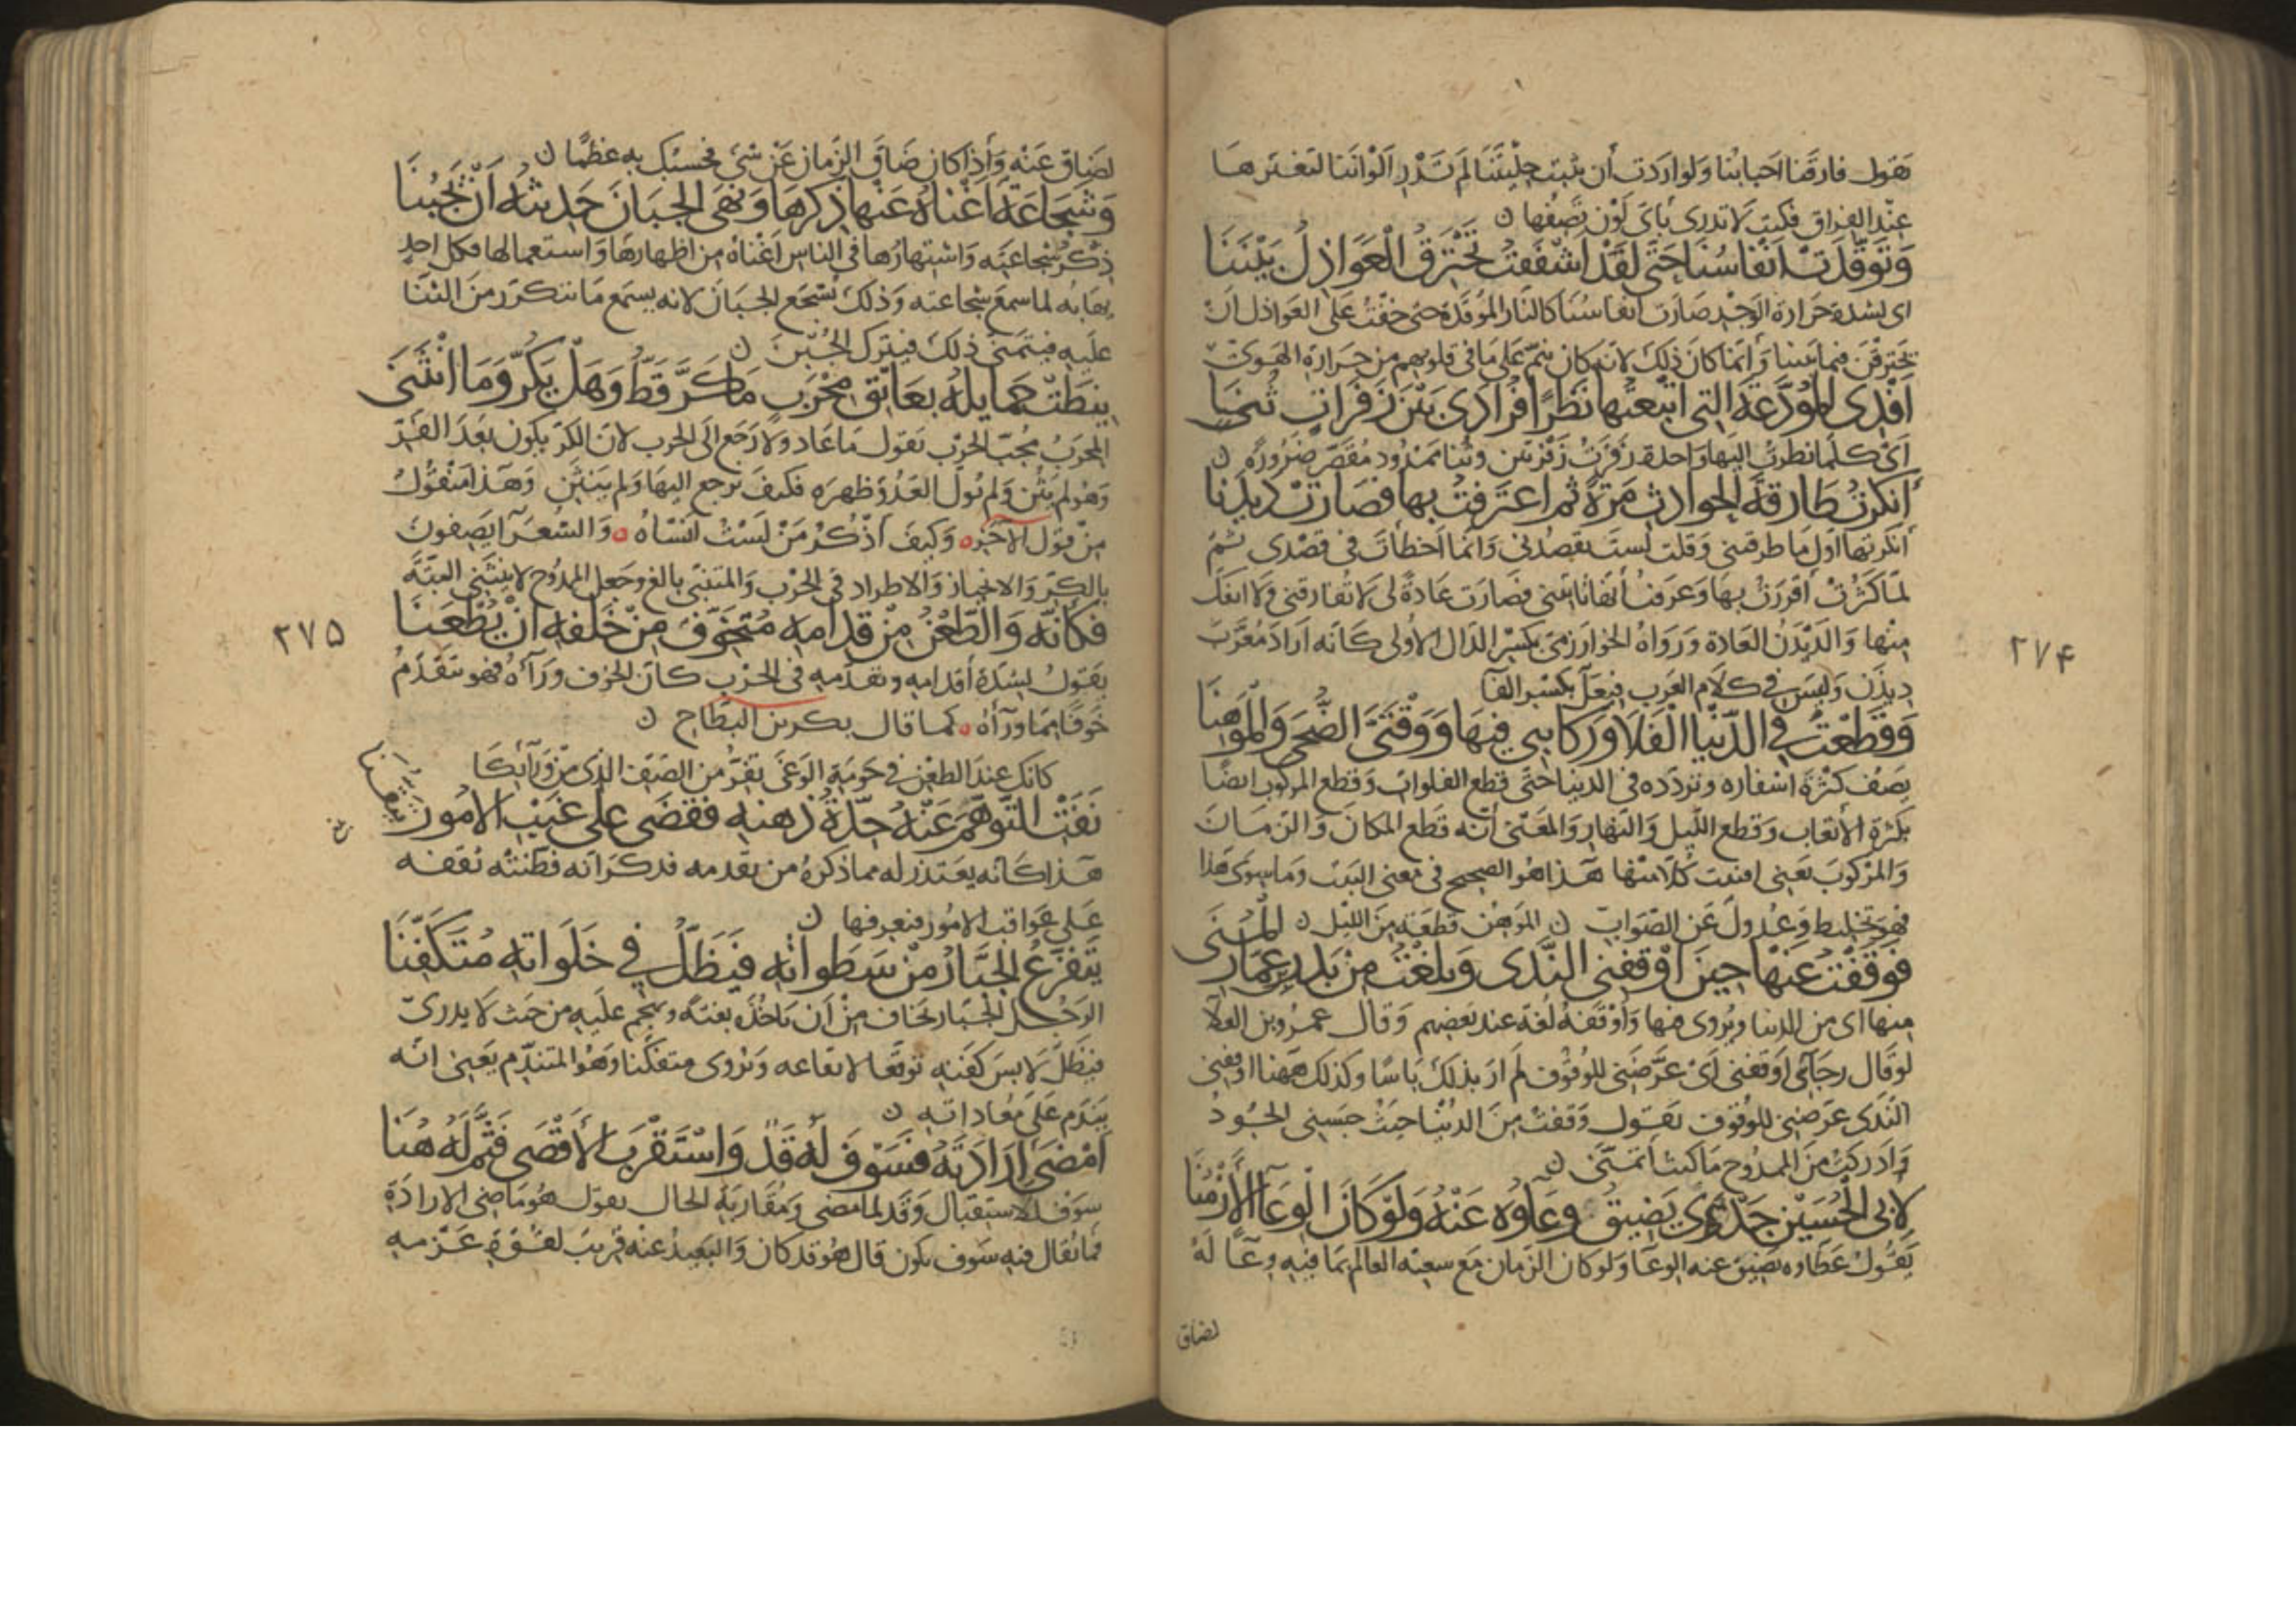 يقول فارقنا احبابنا ولو اردت أن تثبت حليتنا لم تدر الواننا لتغيرها
عند الفراق فكنت لا تدرى باى لون تصفها ن
وَتَوَقَّدَتْ أنفاسُنا حَتَّى لَقَدْ أشفَقتُ تَحْتَرِقُ العَوَاذِلُ بَيْنَنَا
اى لشدة حرارة الوجد صارت انفاسنا كالنار الموقدة حتى خفت على العواذل ان
يحترقن فيما بيننا وانما كان ذلك لانه كان ينم على ما فى قلوبهم من حرارة الهوى
أَفْدِى المُوَدِّعَةَ التى اتبعتُها نَظَرًا فُرَادَى بَيْنَ زَفَراتٍ ثُنَا
اى كلما نظرت اليها واحدة زفرت زفرتين وثنا ممدود مقصر ضرورة ن
أنكرتُ طارقةَ الحوادثِ مَرّةً ثم اعترفتُ بها فصارَتْ دَيْدَنَا
انكرتها اول ما طرقتنى وقلت لست تقصدنى وانما اخطأت فى قصدى ثم
لما كثرت أقررت بها وعرفت أنها تأتينى فصارت عادة لى لا تفارقنى ولا انفك
منها والديدن العادة ورواه الخوارزمى بكسر الدال الاولى كانه اراد معرب
ديذن وليس فى كلام العرب فيعل بكسر الفا
وَقَطَعْتُ فى الدّنْيا الفَلَا وَرَكَائِبى فيهَا وَوَقْتَىَّ الضُّحَى وَالمَوْهِنَا
يصف كثرة اسفاره وتردده فى الدنيا حتى قطع الفلوات وقطع المركوب ايضا
بكثرة الأتعاب وقطع الليل والنهار والمعنى أنه قطع المكان والزمان
والمركوب يعنى افنيت كلا منها هذا هو الصحيح فى معنى البيت وما سوى هذا
فهو تخليط وعدول عن الصواب ن الموهن قطعة من الليل ن
فَوَقَفْتُ عَنْهَا حِينَ أوْقَفَنى النَّدَى وَبَلَغْتُ مِنْ بَدرِ بنِ عَمّارِ المُنَى
منها اى من الدنيا ويروى فيها وأوقفه لغة عند بعضهم وقال عمرو بن العلا
لو قال رجل اوقفنى أى عرّضنى للوقوف لم ار بذلك باسا وكذلك ههنا اوقفنى
الندى عرضنى للوقوف يقول وقفت من الدنيا حيث حبسنى الجود
وادركت من الممدوح ما كنت اتمنى ن
لأبى الحُسَيْنِ جَدًى يَضِيقُ وِعَاؤهُ عَنْهُ وَلَوْ كَانَ الوِعَآ الأَزْمُنَا
يقول عطاوه يضيق عنه الوعا ولو كان الزمان مع سعته العالم بما فيه وعا له
لضاق
٢٧۴
لضاق عنه واذا كان ضاق الزمان عن شئ فحسبك به عظما ن
وَشَجَاعَةٌ أَغْنَاهُ عَنْها ذِكرُهَا وَنَهَى الجَبَانَ حَدِيثُها أَنْ يَجْبُنَا
ذكر شجاعته واشتهارها فى الناس اغناه من اظهارها واستعمالها فكل احد
يهابه لما سمع شجاعته وذلك يشجع الجبان لانه يسمع ما يتكرر من الثنا
عليه فيتمنى ذلك فيترك الجبن ن
نِيطَتْ حَمايلُهُ بعَاتِقِ مِحْرَبٍ مَا كَرَّ قَطُّ وَهَلْ يَكُرُّ وَمَا انْثَنَى
المحرب محب الحرب يقول ما عاد ولا رجع الى الحرب لان الكر يكون بعد الفر
وهو لم يثن ولم يول العدو ظهره فكيف يرجع اليها ولم ينثن وهذا منقول
من قول الآخر وكيف أذكر من لست انساه والشعرآ يصفون
بالكر والانحياز والاطراد فى الحرب والمتنبى بالغ وجعل الممدوح لا ينثنى البتة
فكأنّه وَالطّعْنُ مِنْ قدّامِهِ مُتَخَوِّفٌ مِنْ خَلْفِهِ أنْ يُطْعَنَا
يقول لشدة أقدامه وتقدمه فى الحرب كان الخوف ورآءه فهو يتقدم
خوفا مما ورآه كما قال بكر بن البطاح ن
كانك عند الطعن فى حومة الوغى تفر من الصف الذى من ورآئكا
نَفَتِ التَّوَهُّمَ عَنْهُ حِدّةُ ذِهْنِهِ فقَضَى عَلى غَيْبِ الأمُورِ تَيَقُّنَا
هذا كانه يعتذر له مما ذكره من تقدمه فذكر انه فطنته تقفه
على عواقب الامور فيعرفها ن
يَتَفَزَّعُ الجَبّارُ مِنْ سَطَواتِهِ فَيَظَلُّ فِى خَلَواتِهِ مُتَكَفِّنَا
الرجل الجبار يخاف من أن ياخذه بغتة ويهجم عليه من حيث لا يدرى
فيظل لابس كفنه توقعا لايقاعه ويروى متفكنا وهو المتندم يعنى انه
يندم على معاداته ن
أَمْضَى إِرَادَتَهُ فسَوْفَ لَهُ قَدْ وَاسْتَقْرَبَ الأَقْصَى فَثَمَّ لَهُ هُنَا
سوف للاستقبال وقد لما مضى ومقاربة الحال يقول هو ماضى الارادة
فما يقال فيه سوف يكون قال هو قد كان والبعيد عنه قريب لقوة عزمه
٢٧۵